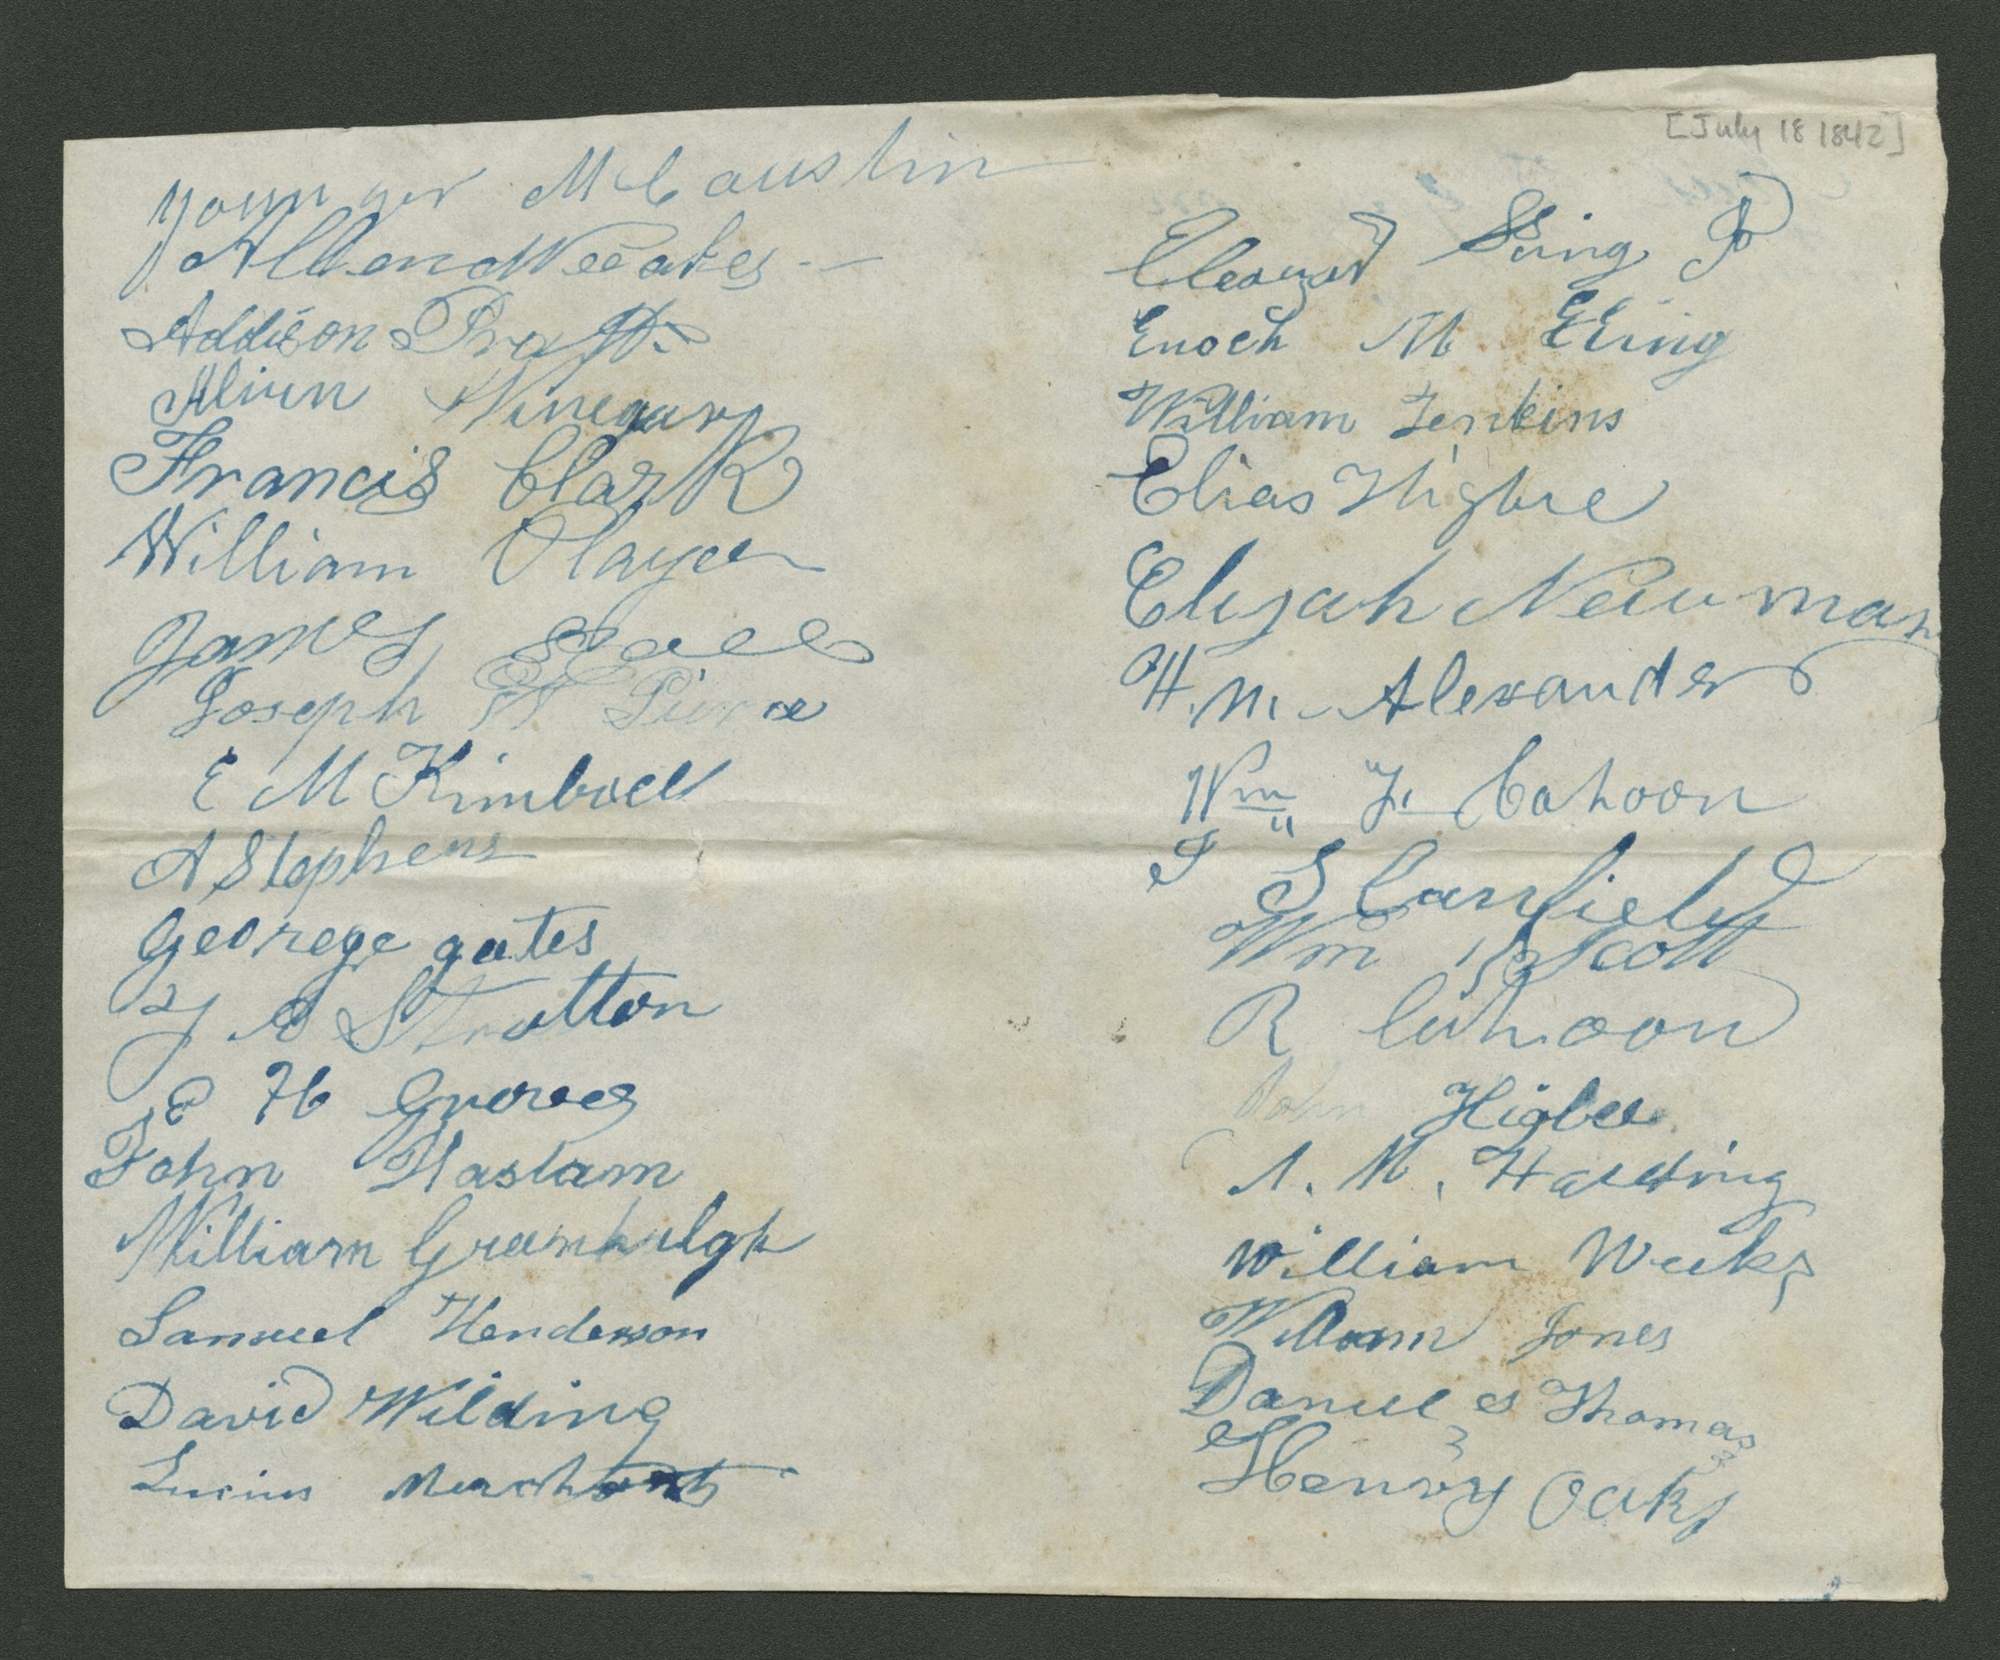 [July 18 1842]
younger McCauslin
Allen Weeakes
Addison Pratt
Alvin Winegar
Francis Clark
William Player
James
Joseph W Pierce
E M Kimball
A Stephens
Georege gates
J A Stratton
E H Groves
John Haslam
William
Samuel Henderson
David Wilding
Lucius Merchant
Eleazar King Jr
Enoch M King
William Jenkins
Elias Higbee
Elijah Newman
H. M. Alexander
Wm F. Cahoon
I S Canfield
Wm Scott
R Cahoon
John Higbee
A. M. Harding
William Weeks
William Jones
Daniel S Thomas
Henry Oaks